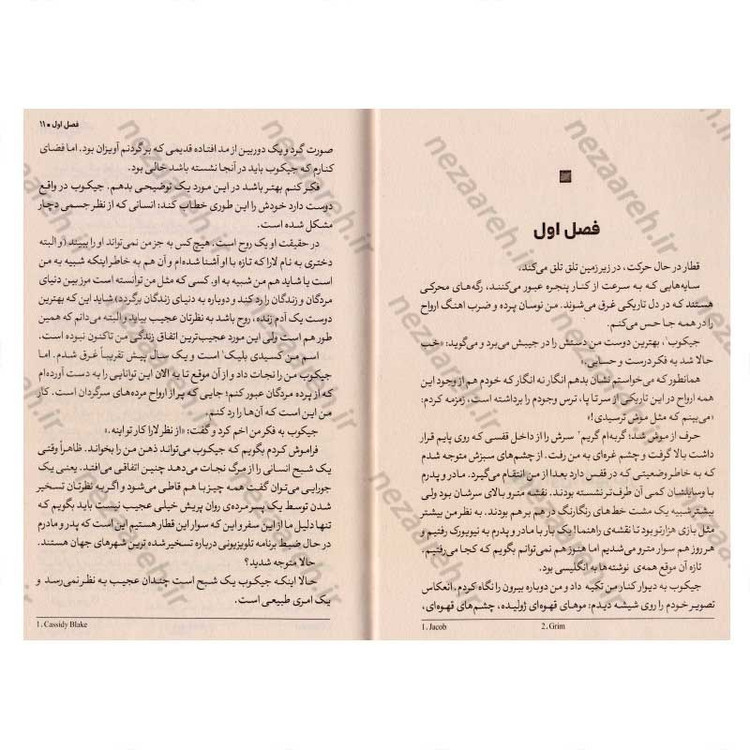 فصل اول
قطار در حال حرکت، در زیر زمین تلق تلق می‌کند.
سایه‌هایی که به سرعت از کنار پنجره عبور می‌کنند، رگه‌های محرکی
هستند که در دل تاریکی غرق می‌شوند. من نوسان پرده و ضرب آهنگ ارواح
را در همه جا حس می‌کنم.
جیکوب۱، بهترین دوست من دستش را در جیبش می‌برد و می‌گوید: «خب
حالا شد یه فکر درست و حسابی.»
همانطور که می‌خواستم نشان بدهم انگار نه انگار که خودم هم از وجود این
همه ارواح در این تاریکی از سر تا پا، ترس وجودم را برداشته است، زمزمه کردم:
«می‌بینم که مثل موش ترسیدی!»
حرف از موش شد؛ گربه‌ام گریم۲ سرش را از داخل قفسی که روی پایم قرار
داشت بالا گرفت و چشم غره‌ای به من رفت. از چشم‌های سبزش متوجه شدم
که به خاطر وضعیتی که در قفس دارد بعداً از من انتقام می‌گیرد. مادر و پدرم
با وسایلشان کمی آن طرف‌تر نشسته بودند. نقشه مترو بالای سرشان بود ولی
بیشتر شبیه یک مشت خط‌های رنگارنگ در هم بر هم بودند. به نظر من بیشتر
مثل بازی هزارتو بود تا نقشه‌ی راهنما! یک بار با مادر و پدرم به نیویورک رفتیم و
هر روز هم سوار مترو می‌شدیم اما هنوز هم نمی‌توانم بگویم که کجا می‌رفتیم.
تازه آن موقع همه‌ی نوشته‌ها به انگلیسی بود.
جیکوب به دیوار کنار من تکیه داد و من دوباره بیرون را نگاه کردم، انعکاس
تصویر خودم را روی شیشه دیدم: موهای قهوه‌ای ژولیده، چشم‌های قهوه‌ای،
1. Jacob 2. Grim
فصل اول ■ ۱۱
صورت گرد و یک دوربین از مد افتاده قدیمی که بر گردنم آویزان بود. اما فضای
کنارم که جیکوب باید در آنجا نشسته باشد خالی بود.
فکر کنم بهتر باشد در این مورد یک توضیحی بدهم. جیکوب در واقع
دوست دارد خودش را این طوری خطاب کند: انسانی که از نظر جسمی دچار
مشکل شده است.
در حقیقت او یک روح است. هیچ کس به جز من نمی‌تواند او را ببیند (و البته
دختری به نام لارا که تازه با او آشنا شده‌ام و آن هم به خاطر اینکه شبیه به من
است یا شاید هم من شبیه به او. کسی که مثل من توانسته است مرز بین دنیای
مردگان و زندگان را رد کند و دوباره به دنیای زندگان برگردد) شاید این که بهترین
دوست یک آدم زنده، روح باشد به نظرتان عجیب بیاید و البته می‌دانم که همین
طور هم است ولی این مورد عجیب‌ترین اتفاق زندگی من تاکنون نبوده است.
اسم من کسیدی بلیک۱ است و یک سال پیش تقریباً غرق شدم. اما
جیکوب من را نجات داد و از آن موقع تا به الان این توانایی را به دست آورده‌ام
که از پرده مردگان عبور کنم؛ جایی که پر از ارواح مرده‌های سرگردان است. کار
من این است که آن‌ها را رد کنم.
جیکوب به فکر من اخم کرد و گفت: «از نظر لارا کار تو اینه.»
فراموش کردم بگویم که جیکوب می‌تواند ذهن من را بخواند. ظاهراً وقتی
یک شبح انسانی را از مرگ نجات می‌دهد چنین اتفاقی می‌افتد. یعنی یک
جورایی می‌توان گفت همه چیز با هم قاطی می‌شود و اگر به نظرتان تسخیر
شدن توسط یک پسر مرده‌ی روان پریش خیلی عجیب نیست باید بگویم که
تنها دلیل ما از این سفر و این که سوار این قطار هستیم این است که پدر و مادرم
در حال ضبط برنامه تلویزیونی درباره تسخیر شده ترین شهرهای جهان هستند.
حالا متوجه شدید؟
حالا اینکه جیکوب یک شبح است چندان عجیب به نظر نمی‌رسد و
یک امری طبیعی است.
1. Cassidy Blake
nezaareh.ir